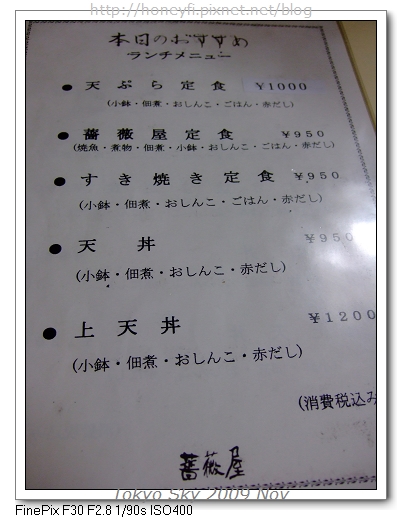 http://honeyfi.pixnet.net/blog
本日のおすすめ
ランチメニュー
● 天ぷら定食 ¥1000
(小鉢・佃煮・おしんこ・ごはん・赤だし)
● 薔薇屋定食 ¥950
(焼魚・煮物・佃煮・小鉢・おしんこ・ごはん・赤だし)
● すき焼き定食 ¥950
(小鉢・佃煮・おしんこ・ごはん・赤だし)
● 天丼 ¥950
(小鉢・佃煮・おしんこ・赤だし)
● 上天丼 ¥1200
(小鉢・佃煮・おしんこ・赤だし)
(消費税込み
薔薇屋
Tokyo Sky 2009 Nov
FinePix F30 F2.8 1/90s ISO400